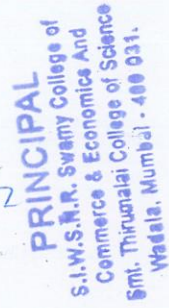 PRINCIPAL
S.I.W.S.N.R. Swamy College of
Commerce & Economics And
Smt. Thirumalai College of Science
Wadala, Mumbai - 400 031.